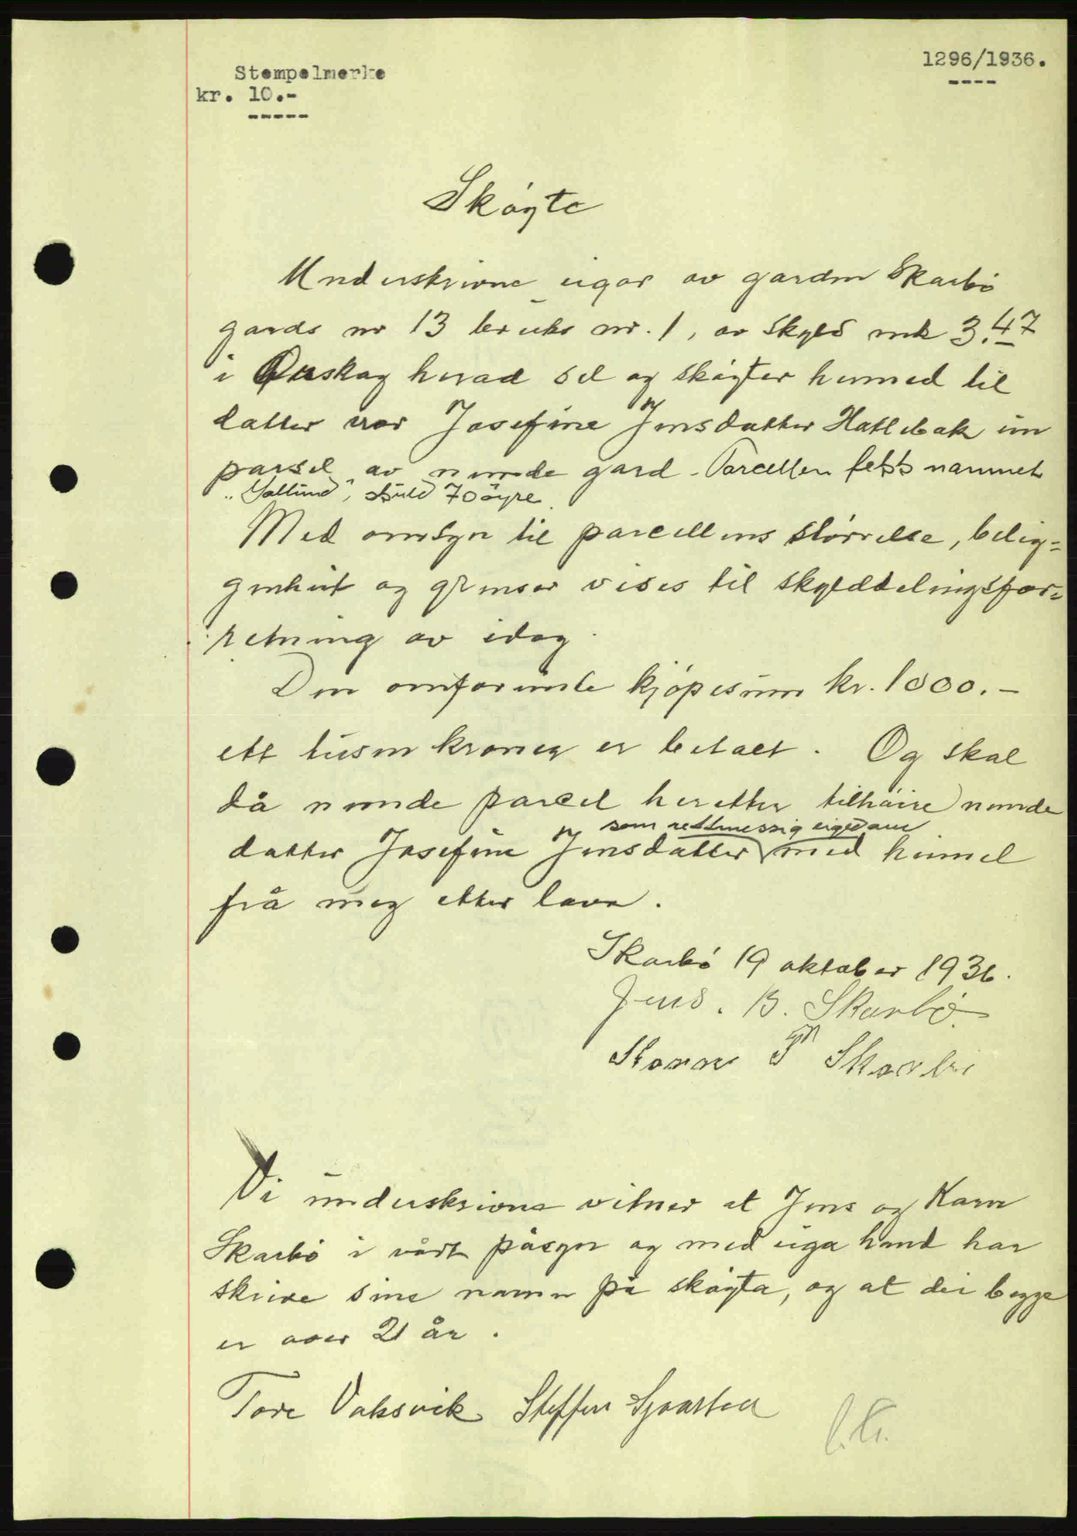 1296/1936.
Stempelmerke
kr. 10.-
Skøyte
Underskrivne eigar av garden Skarbö
gards nr 13 bruks nr. 1, av skyld mk 3.47
i Ørskog herad sel og skøyter hermed til
datter vor Josefine Jensdatter Hatlebak ein
parsel av nemnde gard. Parcellen fekk namnet
" Solund", skuld 70 öyre.
Med omsyn til parcellens størrelse, belig-
genheit og grenser vises til skylddelingsfor-
retning av idag.
Den omforente kjøpesum kr. 1000.-
ett tusen kroner er betalt. Og skal
då nemnde parcel heretter tilhöire nemnde
som rettmessig eigedom
datter Josefine Jensdatter med heimel
frå meg etter lova.
Skarbö 19 oktober 1936.
Jens. B. Skarbö.
Skarbö
Vi underskrivne vitner at Jens og Karn
Skarbö i vårt påsyn og med eiga hand har
skrive sine namn på skøyta, og at dei begge
er over 21 år.
Tore Vaksvik Steffen